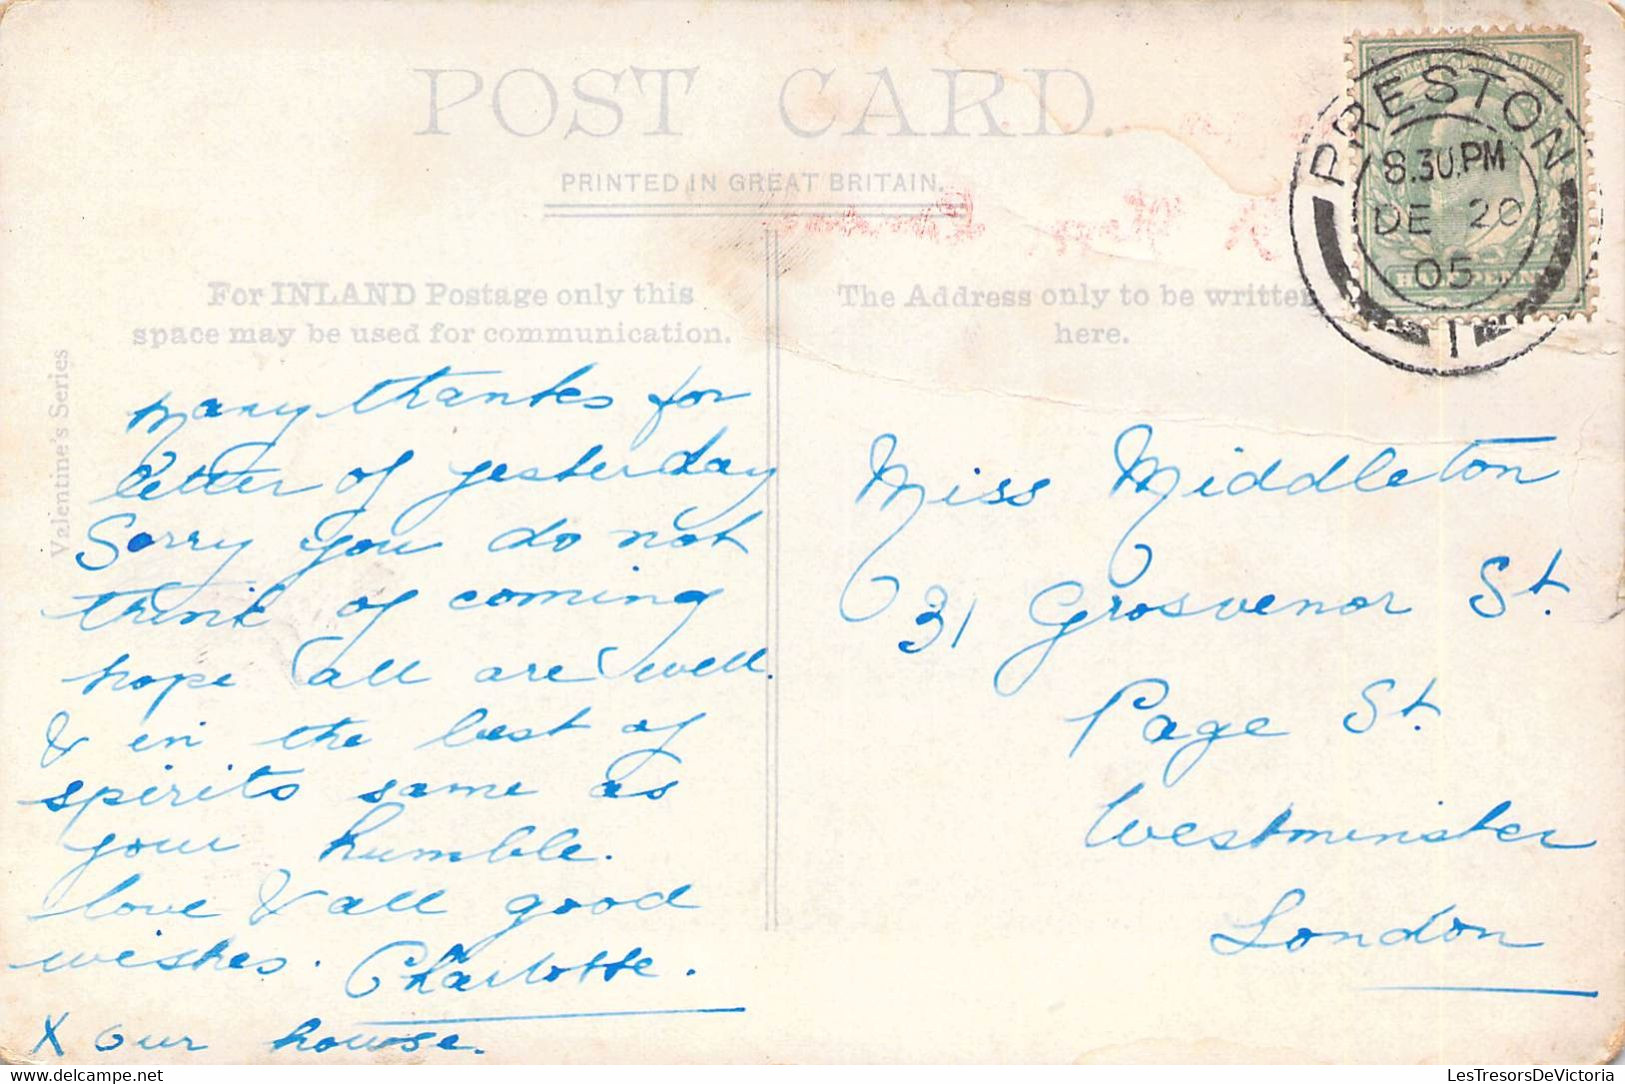 POST CARD.
PRINTED IN GREAT BRITAIN.
For INLAND Postage only this
space may be used for communication.
The Address only to be written
here.
Valentine's Series
PRESTON
8.30.PM
DE 20
05
1
HALFPENNY
many thanks for
letter of yesterday
Sorry you do not
think of coming
hope all are well.
& in the best of
spirits same as
your humble.
love & all good
wishes. Charlotte.
X our house.
Miss Middleton
31 Grosvenor St.
Page St.
Westminster
London
LesTresorsDeVictoria